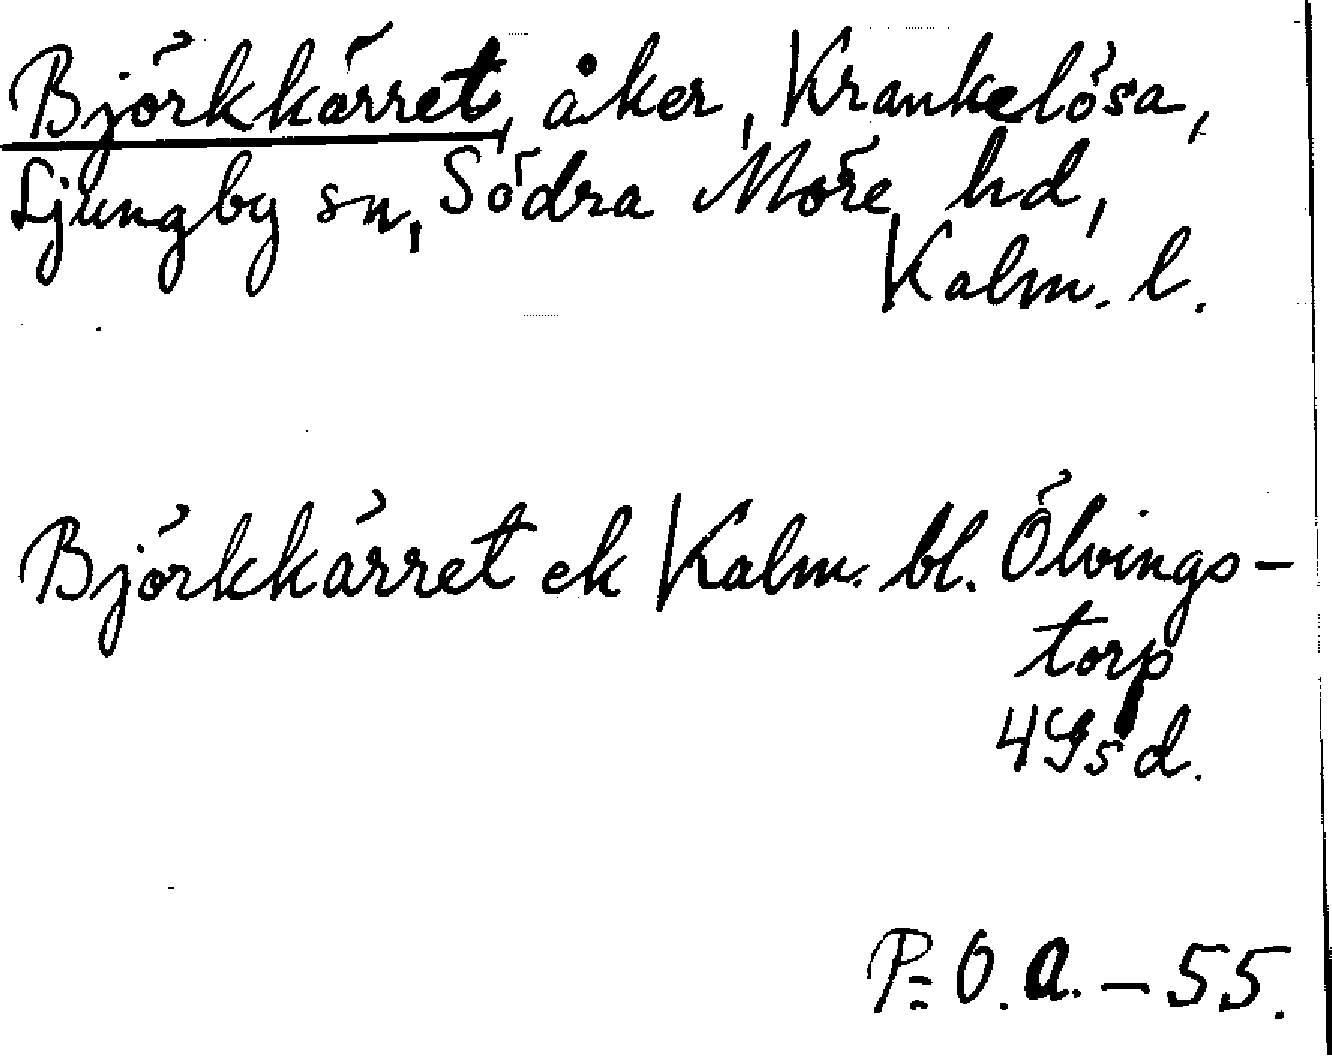 Björkkärret, åker, Krankelösa,
Ljungby sn, Södra Möre hd,
Kalm. l.
Björkkärret ek Kalm. bl. Ölvings-
torp
4Gsd.
P=O.A.-55.